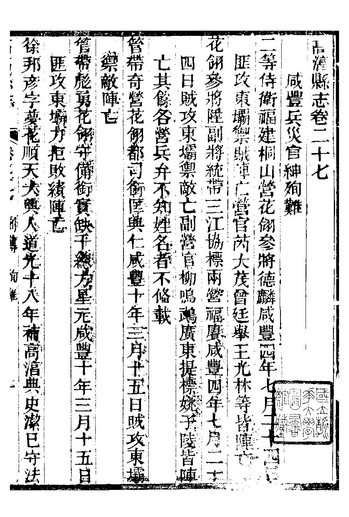 高淳縣志卷二十七
咸豐兵災官紳殉難
二等侍衛福建桐山營花翎參將德麟咸豐四年七月二十四日
匪攻東壩禦賊陣亡營官芮大茂曾廷舉王光林等皆陣亡
花翎參將陸副將統帶三江協標兩營福賡咸豐四年七月二十
四日賊攻東壩禦敵亡副營官柳鳴鸝廣東提標姚子陵皆陣
亡其餘各營兵弁不知姓名者不備載
管帶奇營花翎都司銜匡興仁咸豐十年三月十五日賊攻東壩
禦敵陣亡
管帶彪勇花翎守備銜實缺千總方星元咸豐十年三月十五日
匪攻東壩力拒敗績陣亡
徐邦彥字蓂花順天大興人道光十八年補高淳典史潔己守法